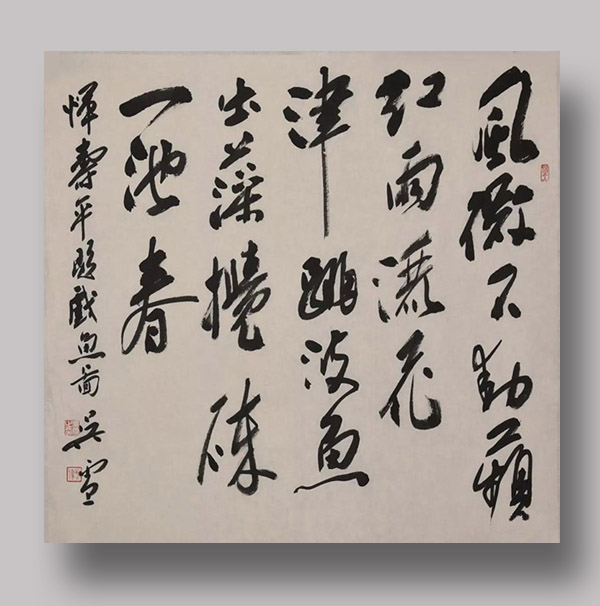 風微不動蘋
紅雨灑花
津跳波魚
出藻攪碎
一池春
惲壽平題戲魚圖 吴雪